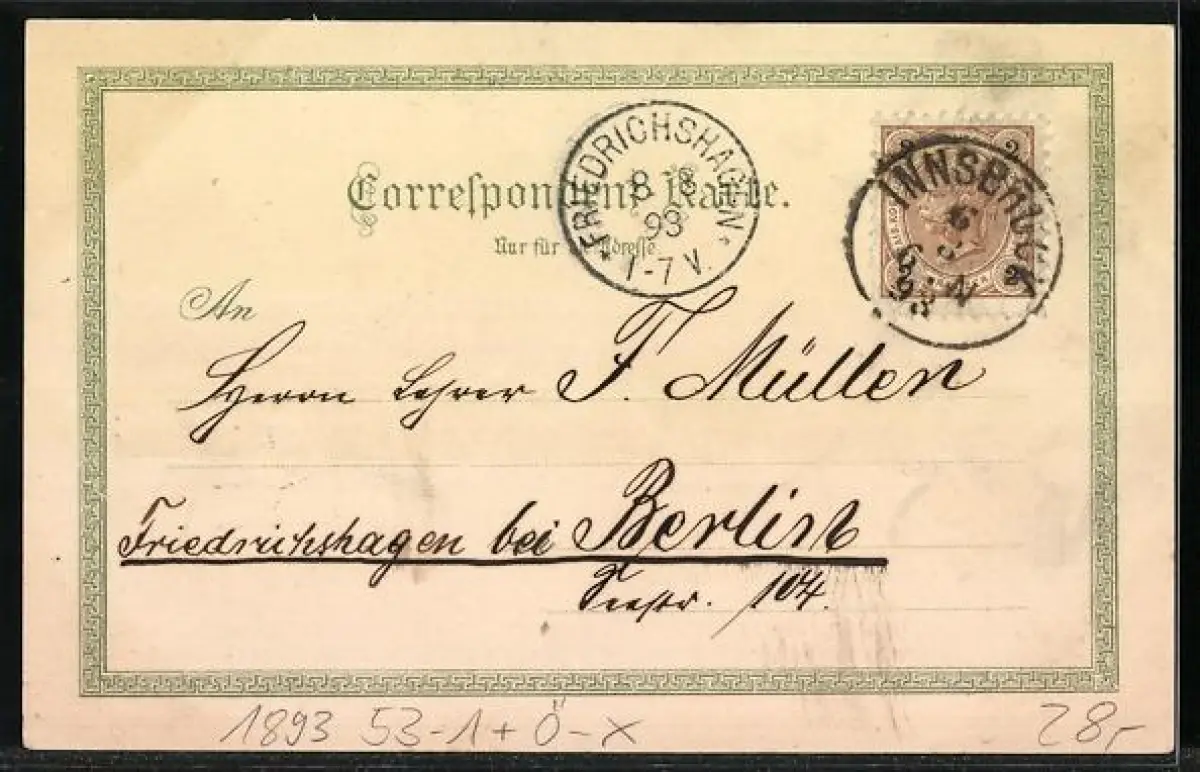 Correspondenz-Karte.
Nur für die Adresse.
FRIEDRICHSHAGEN
8 8
93
* 1-7 V. *
INNSBRUCK
6
8
6 N
93
2 2
2
An
Herrn Lehrer F. Müller
Friedrichshagen bei Berlin
Seestr. 104.
1893 53-1+Ö-X
28,-